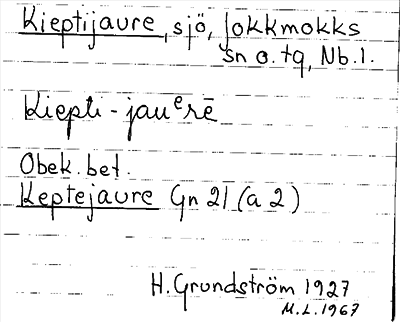 Kieptijaure, sjö, Jokkmokks
sn o. tg, Nb. l.
kiepti-jauᵉrē
Obek. bet.
Keptejaure Gn 21 (a 2)
H. Grundström 1927
M.L. 1967